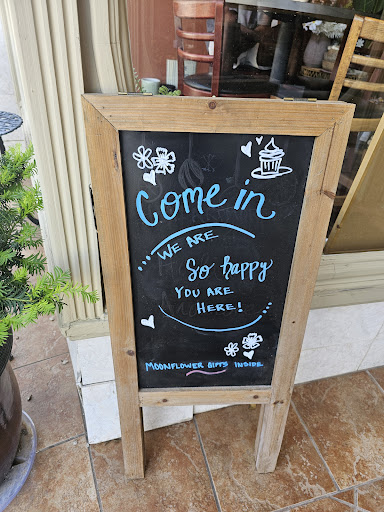 Come in
WE ARE
So happy
YOU ARE
HERE!
MOONFLOWER GIFTS INSIDE